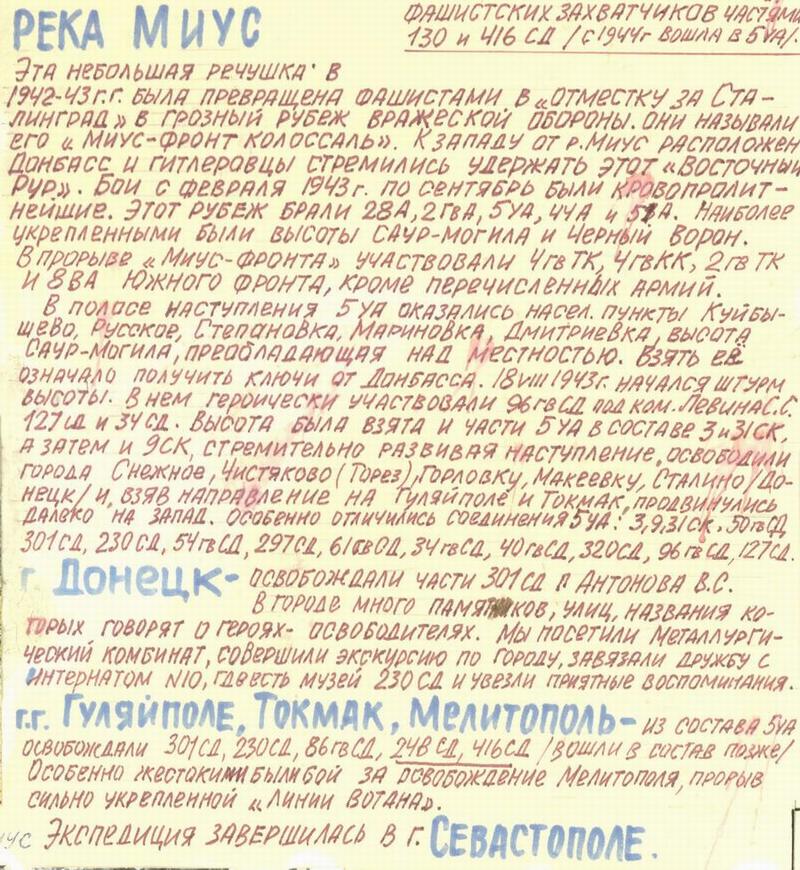 ФАШИСТСКИХ ЗАХВАТЧИКОВ ЧАСТЯМИ
130 и 416 СД /с 1944г ВОШЛА В 5 УА/.
РЕКА МИУС
ЭТА НЕБОЛЬШАЯ РЕЧУШКА В
1942-43 г.г. БЫЛА ПРЕВРАЩЕНА ФАШИСТАМИ В «ОТМЕСТКУ ЗА СТА-
ЛИНГРАД» В ГРОЗНЫЙ РУБЕЖ ВРАЖЕСКОЙ ОБОРОНЫ. ОНИ НАЗЫВАЛИ
ЕГО «МИУС-ФРОНТ КОЛОССАЛЬ». К ЗАПАДУ ОТ р.МИУС РАСПОЛОЖЕН
ДОНБАСС И ГИТЛЕРОВЦЫ СТРЕМИЛИСЬ УДЕРЖАТЬ ЭТОТ «ВОСТОЧНЫЙ
РУР». БОИ С ФЕВРАЛЯ 1943 г. ПО СЕНТЯБРЬ БЫЛИ КРОВОПРОЛИТ-
НЕЙШИЕ. ЭТОТ РУБЕЖ БРАЛИ 28А, 2ГВА, 5УА, 44А и 51А. НАИБОЛЕЕ
УКРЕПЛЕННЫМИ БЫЛИ ВЫСОТЫ САУР-МОГИЛА И ЧЕРНЫЙ ВОРОН.
В ПРОРЫВЕ «МИУС-ФРОНТА» УЧАСТВОВАЛИ 4гвТК, 4гвКК, 2гвТК
И 8ВА ЮЖНОГО ФРОНТА, КРОМЕ ПЕРЕЧИСЛЕННЫХ АРМИЙ.
В ПОЛОСЕ НАСТУПЛЕНИЯ 5УА ОКАЗАЛИСЬ НАСЕЛ. ПУНКТЫ КУЙБЫ-
ШЕВО, РУССКОЕ, СТЕПАНОВКА, МАРИНОВКА, ДМИТРИЕВКА, ВЫСОТА
САУР-МОГИЛА, ПРЕОБЛАДАЮЩАЯ НАД МЕСТНОСТЬЮ. ВЗЯТЬ ЕЁ
ОЗНАЧАЛО ПОЛУЧИТЬ КЛЮЧИ ОТ ДОНБАССА. 18 VIII 1943г. НАЧАЛСЯ ШТУРМ
ВЫСОТЫ. В НЕМ ГЕРОИЧЕСКИ УЧАСТВОВАЛИ 96гвСД ПОД КОМ. ЛЕВИНА С.С.
127СД И 34СД. ВЫСОТА БЫЛА ВЗЯТА И ЧАСТИ 5УА В СОСТАВЕ 3 и 31СК,
А ЗАТЕМ И 9СК, СТРЕМИТЕЛЬНО РАЗВИВАЯ НАСТУПЛЕНИЕ, ОСВОБОДИЛИ
ГОРОДА СНЕЖНОЕ, ЧИСТЯКОВО (ТОРЕЗ), ГОРЛОВКУ, МАКЕЕВКУ, СТАЛИНО /ДО-
НЕЦК/ И, ВЗЯВ НАПРАВЛЕНИЕ НА ГУЛЯЙПОЛЕ И ТОКМАК, ПРОДВИНУЛИСЬ
ДАЛЕКО НА ЗАПАД. ОСОБЕННО ОТЛИЧИЛИСЬ СОЕДИНЕНИЯ 5УА: 3,9,31СК, 50гвСД,
301СД, 230СД, 54гвСД, 297СД, 61гвСД, 34гвСД, 40гвСД, 320СД, 96гвСД, 127СД.
г ДОНЕЦК- ОСВОБОЖДАЛИ ЧАСТИ 301СД п АНТОНОВА В.С.
В ГОРОДЕ МНОГО ПАМЯТНИКОВ, УЛИЦ, НАЗВАНИЯ КО-
ТОРЫХ ГОВОРЯТ О ГЕРОЯХ- ОСВОБОДИТЕЛЯХ. МЫ ПОСЕТИЛИ МЕТАЛЛУРГИ-
ЧЕСКИЙ КОМБИНАТ, СОВЕРШИЛИ ЭКСКУРСИЮ ПО ГОРОДУ, ЗАВЯЗАЛИ ДРУЖБУ С
ИНТЕРНАТОМ N10, ГДЕ ЕСТЬ МУЗЕЙ 230СД И УВЕЗЛИ ПРИЯТНЫЕ ВОСПОМИНАНИЯ.
г.г. ГУЛЯЙПОЛЕ, ТОКМАК, МЕЛИТОПОЛЬ- ИЗ СОСТАВА 5УА
ОСВОБОЖДАЛИ 301СД, 230СД, 86гвСД, 248СД, 416СД /ВОШЛИ В СОСТАВ ПОЗЖЕ/
ОСОБЕННО ЖЕСТОКИМИ БЫЛИ БОЙ ЗА ОСВОБОЖДЕНИЕ МЕЛИТОПОЛЯ, ПРОРЫВ
СИЛЬНО УКРЕПЛЕННОЙ «ЛИНИИ ВОТАНА».
УС ЭКСПЕДИЦИЯ ЗАВЕРШИЛАСЬ В г. СЕВАСТОПОЛЕ.